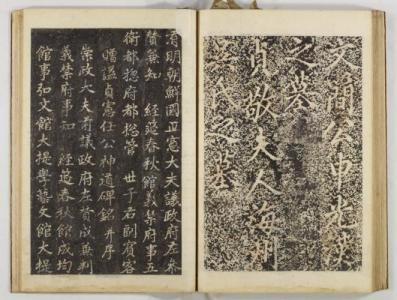 文簡公申光漢
之墓
貞敬夫人海
氏之墓
有明朝鮮國正憲大夫議政府左參
贊兼知 經筵春秋館義禁府事五
衛都摠府都摠管 世子右副賓客
贈諡貞憲任公神道碑銘并序
崇政大夫前議政府左贊成兼判
義禁府事知 經筵春秋館成均
館事弘文館大提學藝文館大提